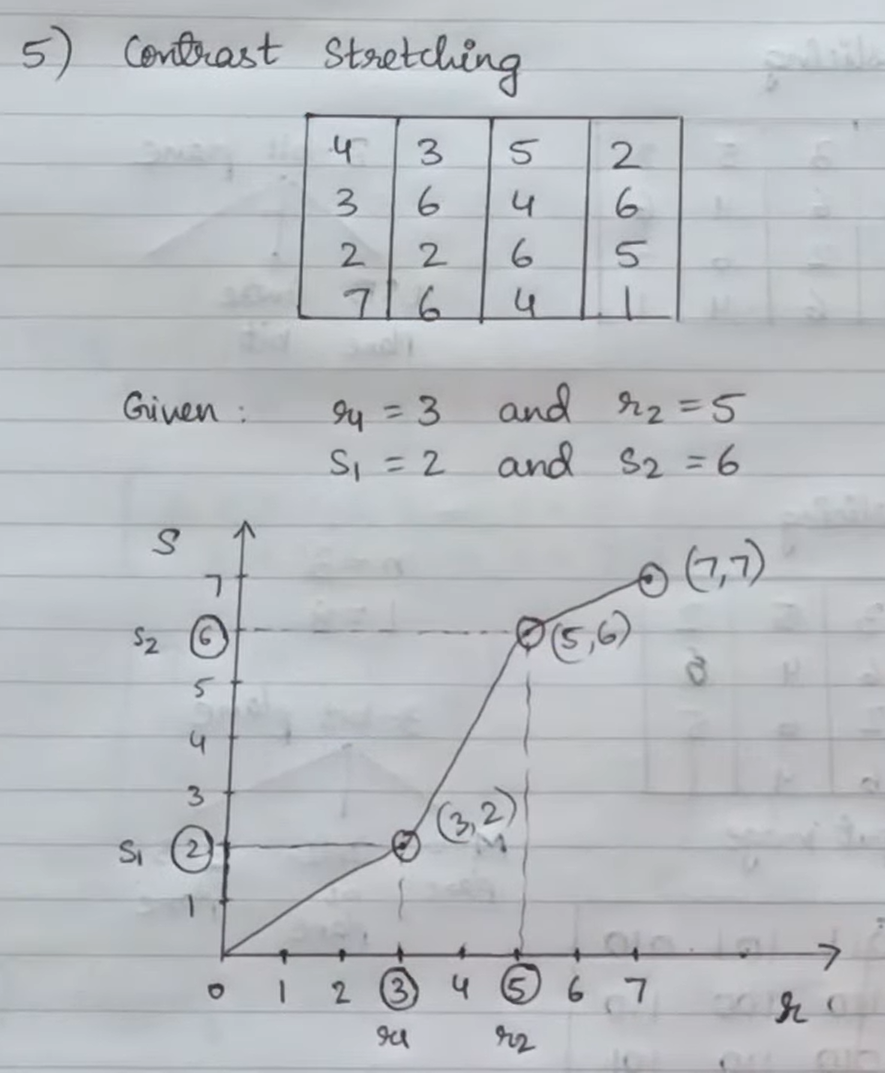 5) Contrast Stretching
4 3 5 2
3 6 4 6
2 2 6 5
7 6 4 1
Given : r1 = 3 and r2 = 5
S1 = 2 and S2 = 6
S
7 (7,7)
S2 6 (5,6)
5
4
3
S1 2 (3,2)
1
0 1 2 3 4 5 6 7 r
r1 r2